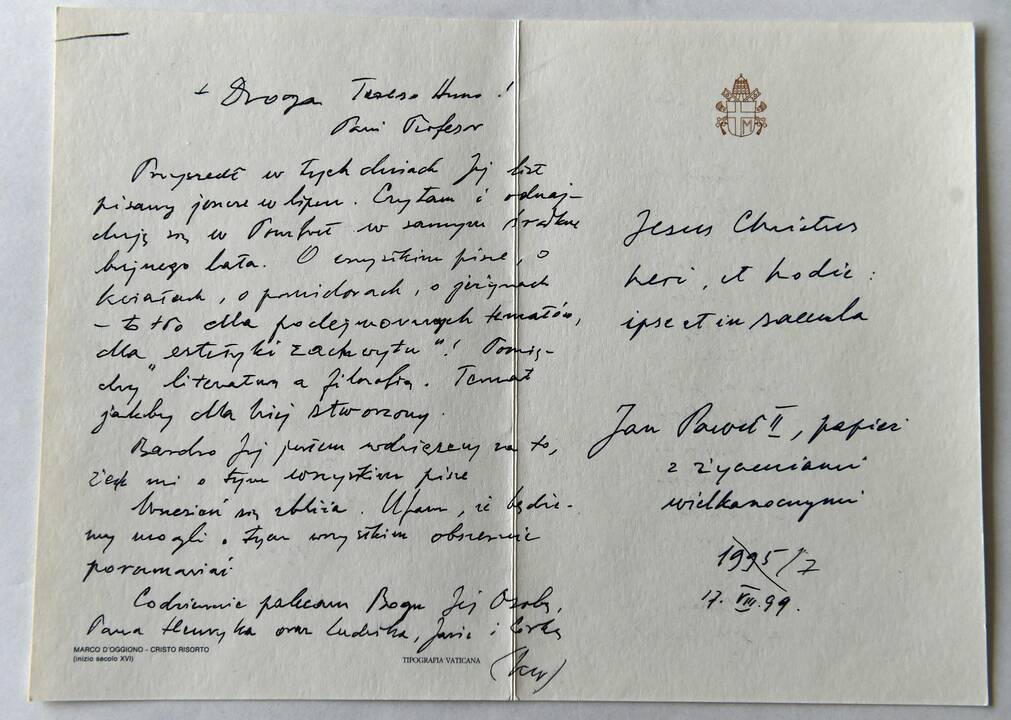 + Droga Tereso Anno!
Pani Profesor
Przyszedł w tych dniach Jej list
pisany jeszcze w lipcu. Czytam i odnaj-
duję się w w samym środku
bujnego lata. O wszystkim pisze, o
kwiatach, o pomidorach, o jeżynach
– to tło dla podejmowanych tematów,
dla "estetyki zachwytu"! Pomię-
dzy literaturą a filozofią. Temat
jakby dla Niej stworzony.
Bardzo Jej jestem wdzięczny za to,
że mi o tym wszystkim pisze
Wrzesień się zbliża. Ufam, że będzie-
my mogli o tym wszystkim obszernie
porozmawiać
Codziennie polecam Bogu Jej Osobę,
Pana Henryka oraz Ludwika, i
MARCO D'OGGIONO - CRISTO RISORTO
(inizio secolo XVI)
TIPOGRAFIA VATICANA
M
Jesus Christus
heri, et hodie:
ipse et in saecula
Jan Paweł II, papież
z życzeniami
wielkanocnymi
1995/7
17. VIII. 99.